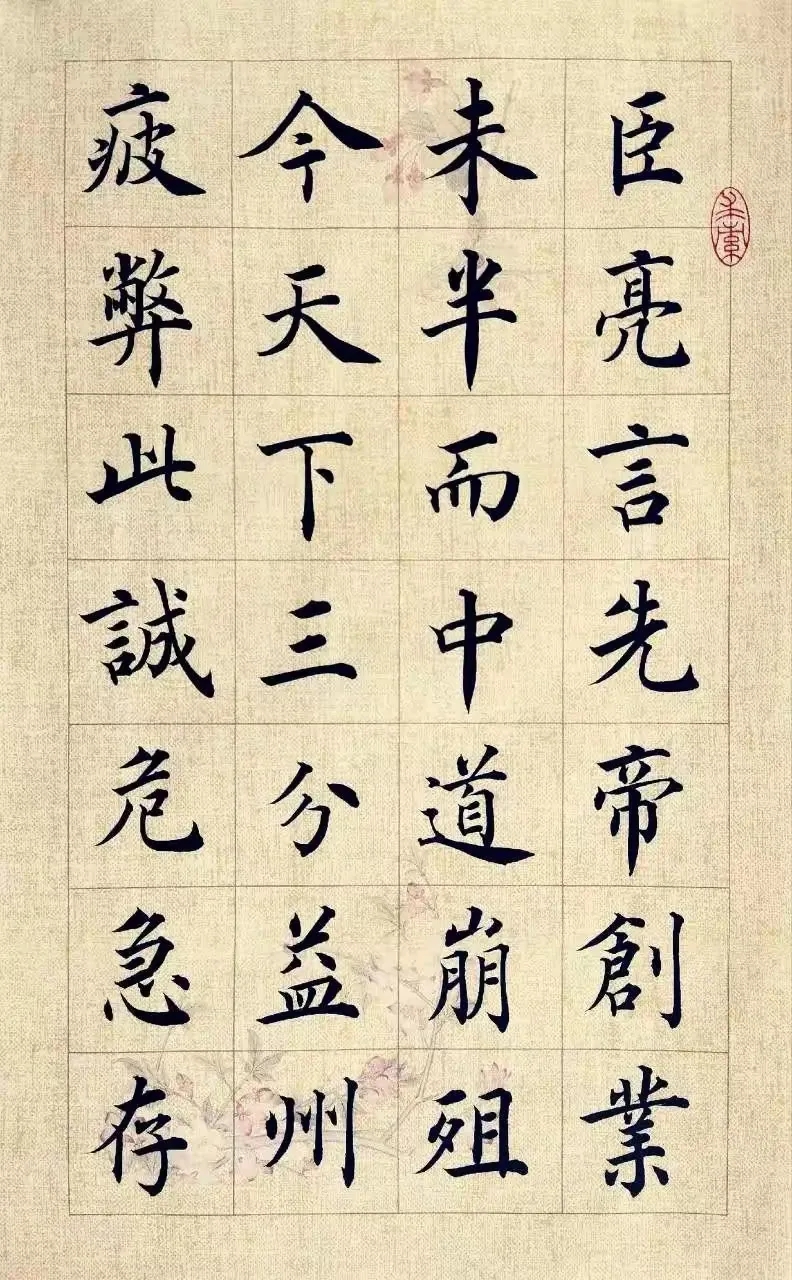 臣亮言先帝創業
未半而中道崩殂
今天下三分益州
疲弊此誠危急存